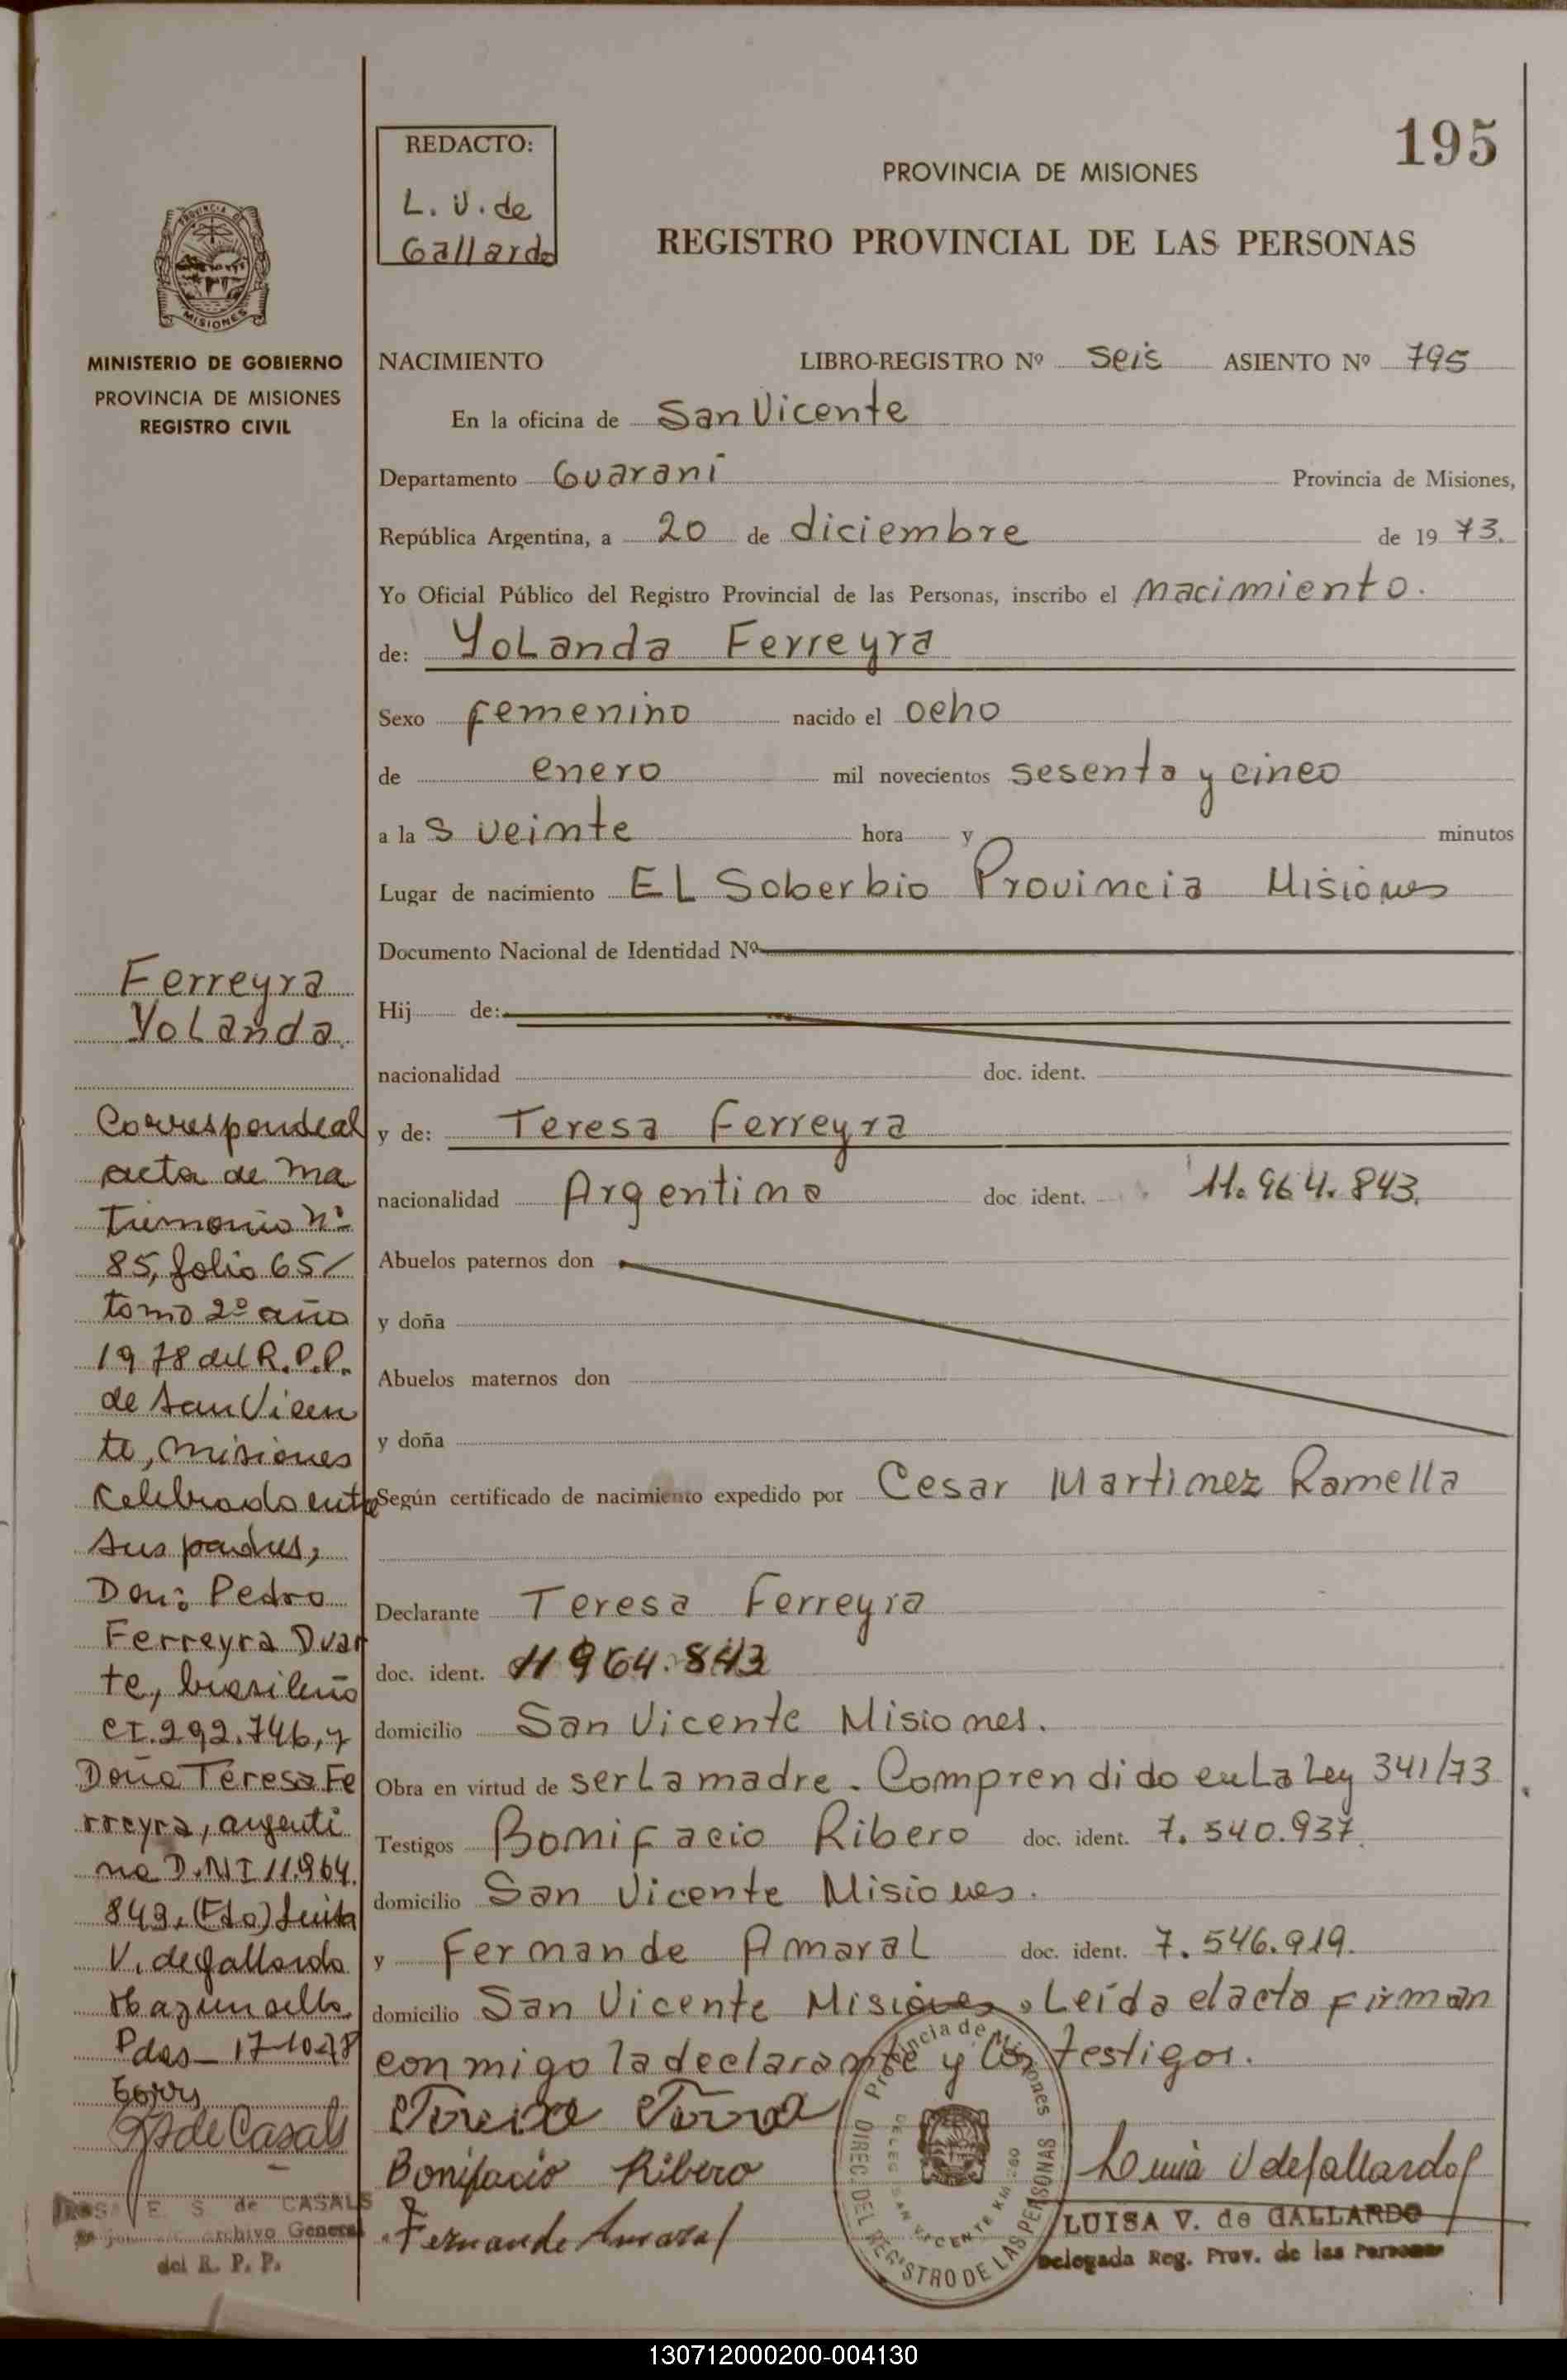 195
REDACTO:
L. V. de
Gallardo
PROVINCIA DE MISIONES
REGISTRO PROVINCIAL DE LAS PERSONAS
PROVINCIA DE
MISIONES
MINISTERIO DE GOBIERNO
PROVINCIA DE MISIONES
REGISTRO CIVIL
NACIMIENTO LIBRO-REGISTRO Nº Seis ASIENTO Nº 795
En la oficina de San Vicente
Departamento Guaraní Provincia de Misiones,
República Argentina, a 20 de diciembre de 19 73.
Yo Oficial Público del Registro Provincial de las Personas, inscribo el nacimiento.
de: Yolanda Ferreyra
Sexo femenino nacido el ocho
de enero mil novecientos sesenta y cinco
a la s veinte hora y minutos
Lugar de nacimiento El Soberbio Provincia Misiones
Documento Nacional de Identidad Nº
Hij de:
nacionalidad doc. ident.
y de: Teresa Ferreyra
nacionalidad Argentina doc ident. 11.964.843.
Abuelos paternos don
y doña
Abuelos maternos don
y doña
Según certificado de nacimiento expedido por Cesar Martinez Ramella
Declarante Teresa Ferreyra
doc. ident. 11 964.843
domicilio San Vicente Misiones.
Obra en virtud de ser la madre. Comprendido en la Ley 341/73
Testigos Bonifacio Ribero doc. ident. 7.540.937.
domicilio San Vicente Misiones.
y Fernande Amaral doc. ident. 7.546.919.
domicilio San Vicente Misiones. Leída el acta firman
conmigo la declarante y los testigos.
Bonifacio Ribero
Fernande Amaral
Luisa V de Gallardo
LUISA V. de GALLARDO
Delegada Reg. Prov. de las Personas
Provincia de Misiones
DIREC. DEL REGISTRO DE LAS PERSONAS
Ferreyra
Yolanda.
Corresponde al
acta de ma
trimonio nº
85, folio 65/
tomo 2º año
1978 del R.P.P.
de San Vicen
te, Misiones
celebrado entre
sus padres,
Don: Pedro
Ferreyra Duar
te, brasileño
CI. 292.746, y
Doña Teresa Fe
rreyra, argenti
na D.N.I 11.964.
843. (Fdo) Luisa
V. de Gallardo
Hay un sello
Pdas- 17-10-78
de Casals
ROSA E. S. de CASALS
Archivo General
del R. P. P.
130712000200-004130